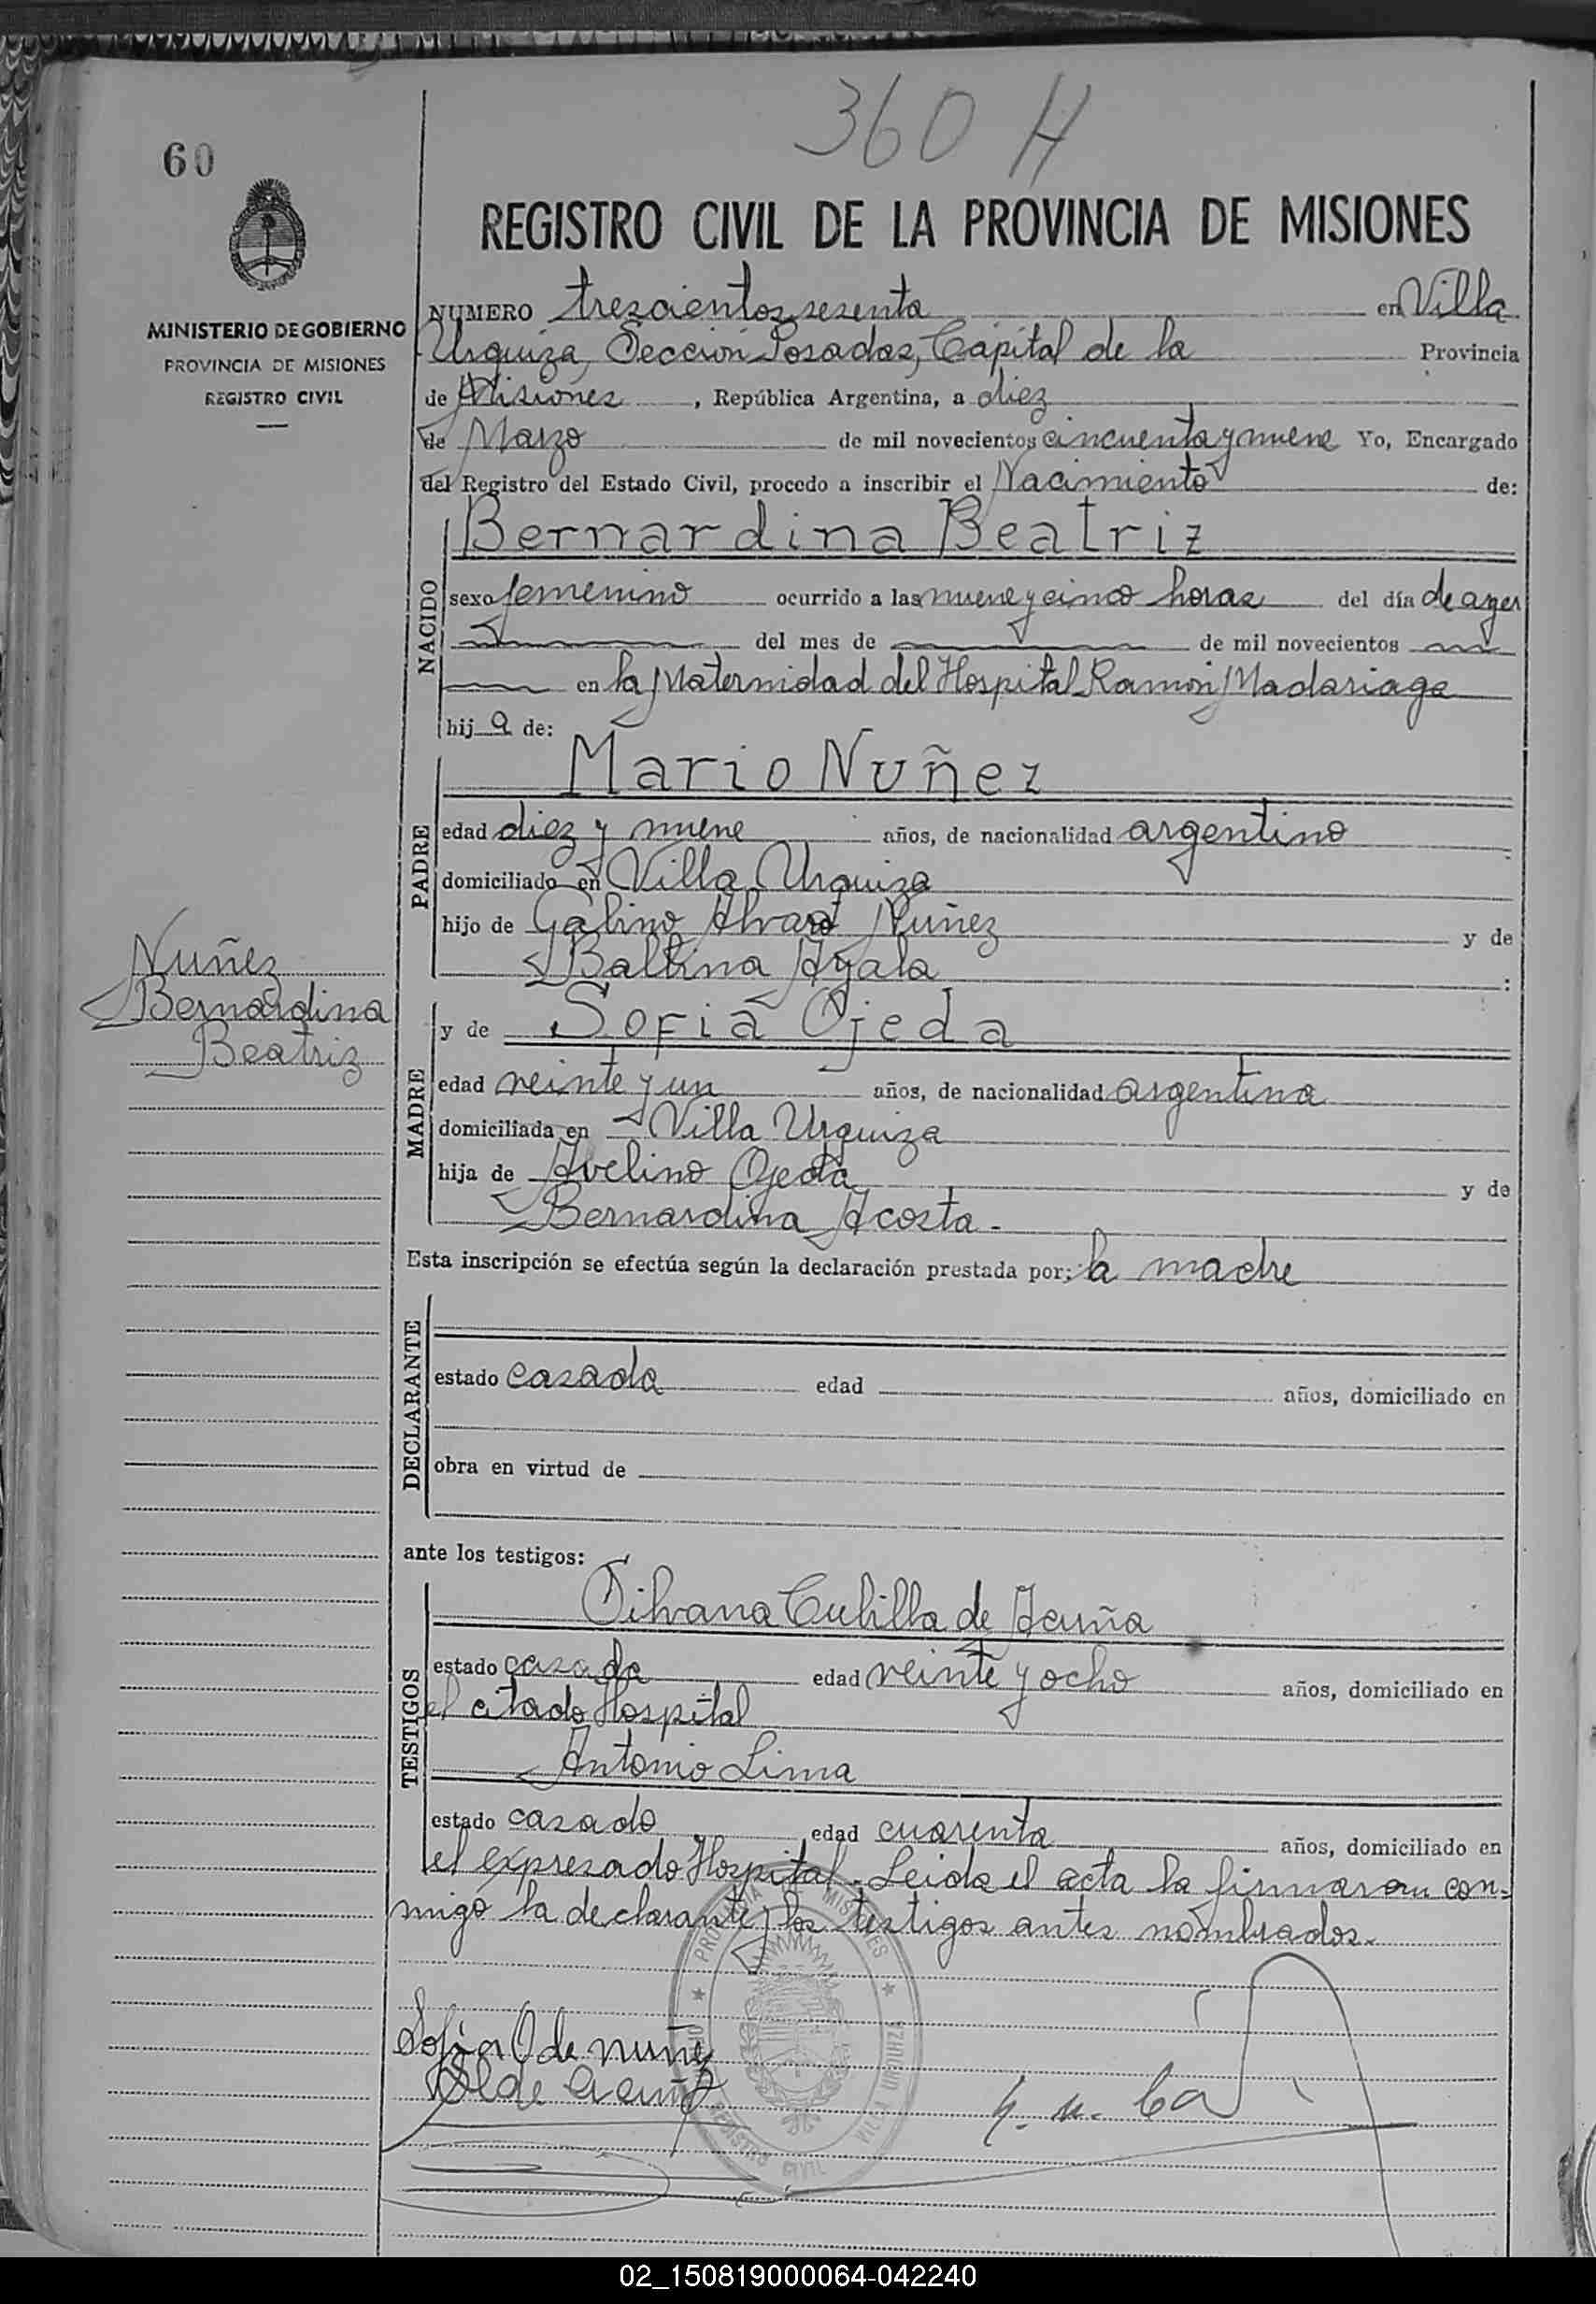 360 H
60
REGISTRO CIVIL DE LA PROVINCIA DE MISIONES
MINISTERIO DE GOBIERNO
PROVINCIA DE MISIONES
REGISTRO CIVIL
NUMERO trescientos sesenta en Villa
Urquiza, Seccion Posadas, Capital de la Provincia
de Misiones, República Argentina, a diez
de Marzo de mil novecientos cincuenta y nueve Yo, Encargado
del Registro del Estado Civil, procedo a inscribir el Nacimiento de:
NACIDO
Bernardina Beatriz
sexo femenino ocurrido a las nueve y cinco horas del día de ayer
del mes de de mil novecientos
en la Maternidad del Hospital Ramón Madariaga
hija de:
PADRE
Mario Nuñez
edad diez y nueve años, de nacionalidad argentino
domiciliado en Villa Urquiza
hijo de Galino Alvaro Nuñez y de
Balbina Ayala:
Nuñez
Bernardina
Beatriz
MADRE
y de Sofia Ojeda
edad veinte y un años, de nacionalidad argentina
domiciliada en Villa Urquiza
hija de Avelino Ojeda y de
Bernardina Acosta.-
Esta inscripción se efectúa según la declaración prestada por: la madre
DECLARANTE
estado casada edad años, domiciliado en
obra en virtud de
ante los testigos:
TESTIGOS
Silvana Cubilla de Acuña
estado casada edad veinte y ocho años, domiciliado en
el citado Hospital
Antonio Lima
estado casado edad cuarenta años, domiciliado en
el expresado Hospital.- Leida el acta la firmaron con-
migo la declarante y los testigos antes nombrados.-
PROVINCIA DE MISIONES
REGISTRO CIVIL
VILLA URQUIZA
Sofia O de nuñez
S C de Acuña
02_150819000064-042240